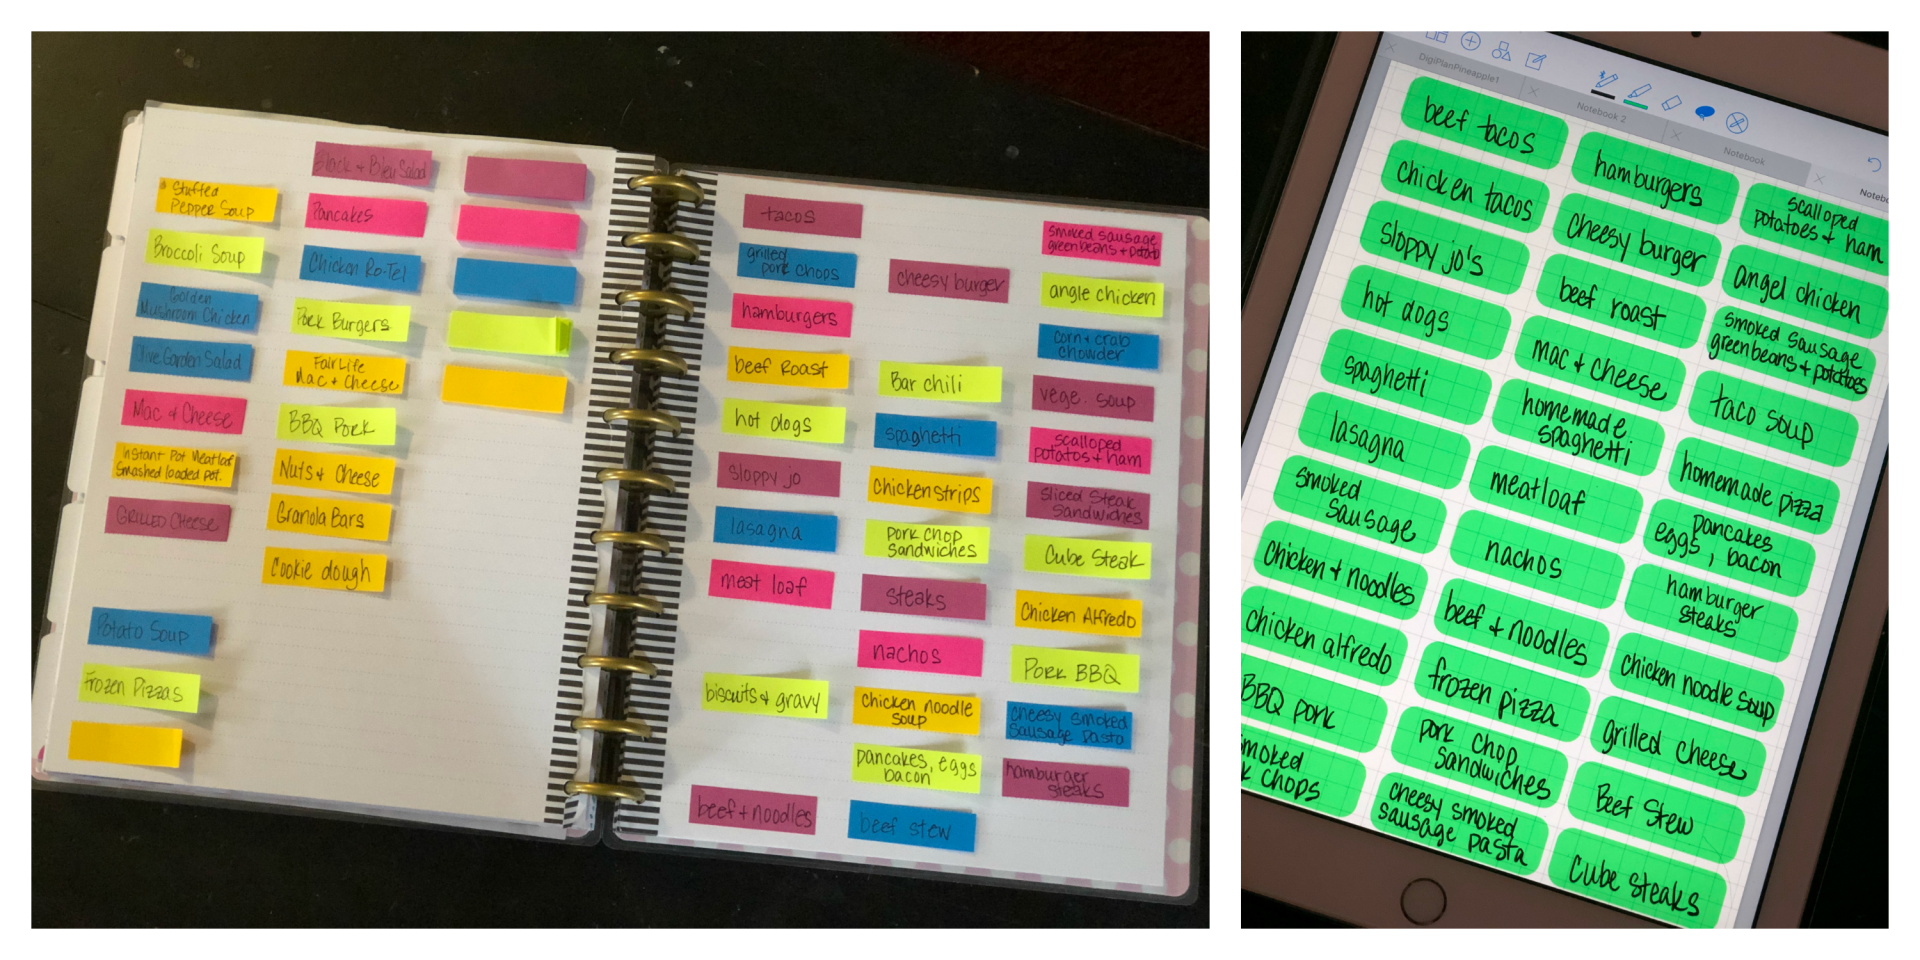 Stuffed
Pepper Soup
Broccoli Soup
Golden
Mushroom Chicken
Olive Garden Salad
Mac & Cheese
Instant Pot Meatloaf
Smashed loaded pot.
GRILLED CHEESE
Potato Soup
Frozen Pizzas
Black & Bleu Salad
Pancakes
Chicken Ro-Tel
Pork Burgers
FairLife
Mac & Cheese
BBQ Pork
Nuts & Cheese
Granola Bars
Cookie dough
tacos
grilled
pork chops
hamburgers
beef Roast
hot dogs
sloppy jo
lasagna
meat loaf
biscuits & gravy
beef + noodles
cheesy burger
Bar chili
spaghetti
chicken strips
pork chop
sandwiches
steaks
nachos
chicken noodle
soup
pancakes, eggs
bacon
beef stew
smoked sausage
green beans + potato
angle chicken
corn + crab
chowder
vege. soup
scalloped
potatos + ham
sliced steak
sandwiches
Cube Steak
Chicken Alfredo
Pork BBQ
cheesy smoked
sausage pasta
hamburger
steaks
DigiPlanPineapple1
Notebook 2
Notebook
Noteb
beef tacos
chicken tacos
sloppy jo's
hot dogs
spaghetti
lasagna
smoked
sausage
chicken + noodles
chicken alfredo
BBQ pork
smoked
k chops
hamburgers
cheesy burger
beef roast
mac + cheese
homemade
spaghetti
meatloaf
nachos
beef + noodles
frozen pizza
pork chop
sandwiches
cheesy smoked
sausage pasta
scalloped
potatoes + ham
angel chicken
smoked sausage
green beans + potatoes
taco soup
homemade pizza
pancakes
eggs, bacon
hamburger
steaks
chicken noodle soup
grilled cheese
Beef Stew
Cube steaks